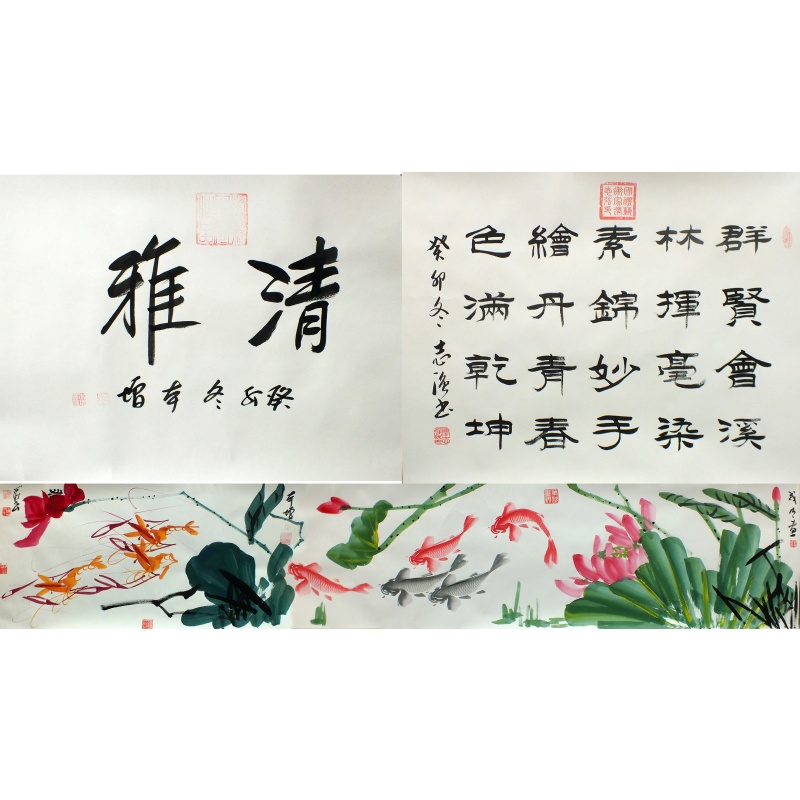 清雅
癸卯冬本增
群賢會溪
林揮毫染
素錦妙手
繪丹青春
色滿乾坤
癸卯冬志強書